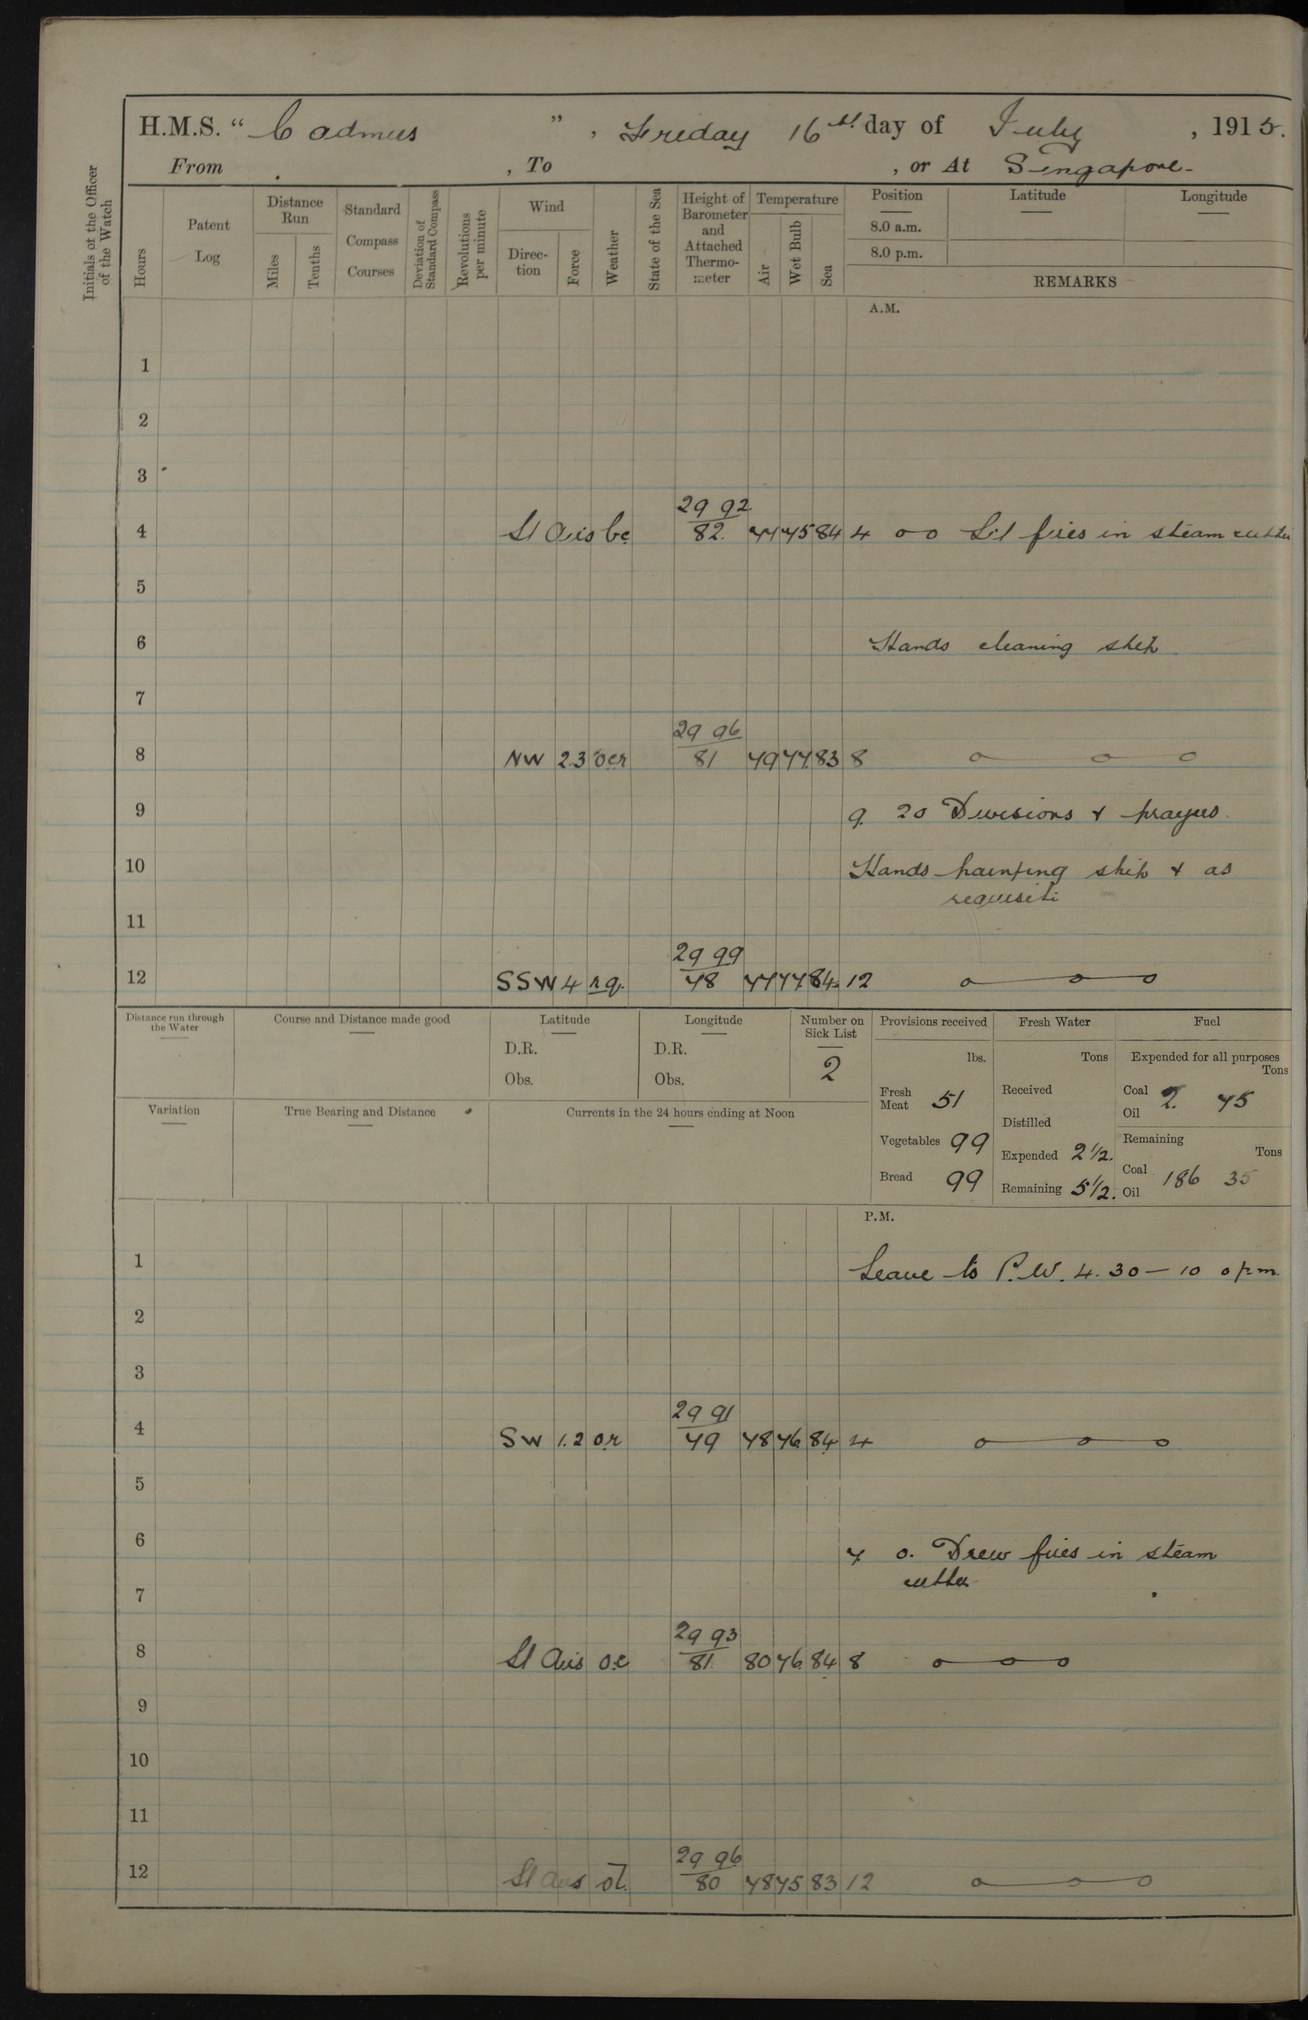 H.M.S. "Cadmus", Friday 16th day of July, 1915.
From , To , or At Singapore
Initials of the Officer of the Watch
Hours
Patent Log
Distance Run
Miles
Tenths
Standard Compass Courses
Deviation of Standard Compass
Revolutions per minute
Wind
Direction
Force
Weather
State of the Sea
Height of Barometer and Attached Thermometer
Temperature
Air
Wet Bulb
Sea
Position
Latitude
Longitude
8.0 a.m.
8.0 p.m.
REMARKS
A.M.
1
2
3
29 92
4 Lt Airs bc 82 77 75 84 4 o o Lit fires in steam cutter
5
6 Hands cleaning ship
7
29 96
8 NW 2.3 ocr 81 79 77 83 8 o o o
9 9. 20 Divisions & prayers.
10 Hands painting ship & as
requisite
11
29 99
12 SSW 4 r.q. 78 77 77 84 12 o o o
Distance run through the Water
Course and Distance made good
Latitude
D.R.
Obs.
Longitude
D.R.
Obs.
Number on Sick List
2
Provisions received
lbs.
Fresh Meat 51
Vegetables 99
Bread 99
Fresh Water
Tons
Received
Distilled
Expended 2 1/2.
Remaining 5 1/2.
Fuel
Expended for all purposes
Tons
Coal 2 75
Oil
Remaining
Tons
Coal 186 35
Oil
Variation
True Bearing and Distance
Currents in the 24 hours ending at Noon
P.M.
1 Leave to P.W. 4.30 — 10 0 pm
2
3
29 91
4 SW 1.2 o.r 79 78 76 84 4 o o o
5
6 7 0. Drew fires in steam
cutter
7
29 93
8 Lt Airs o.c 81 80 76 84 8 o o o
9
10
11
29 96
12 Lt Airs 80 78 75 83 12 o o o